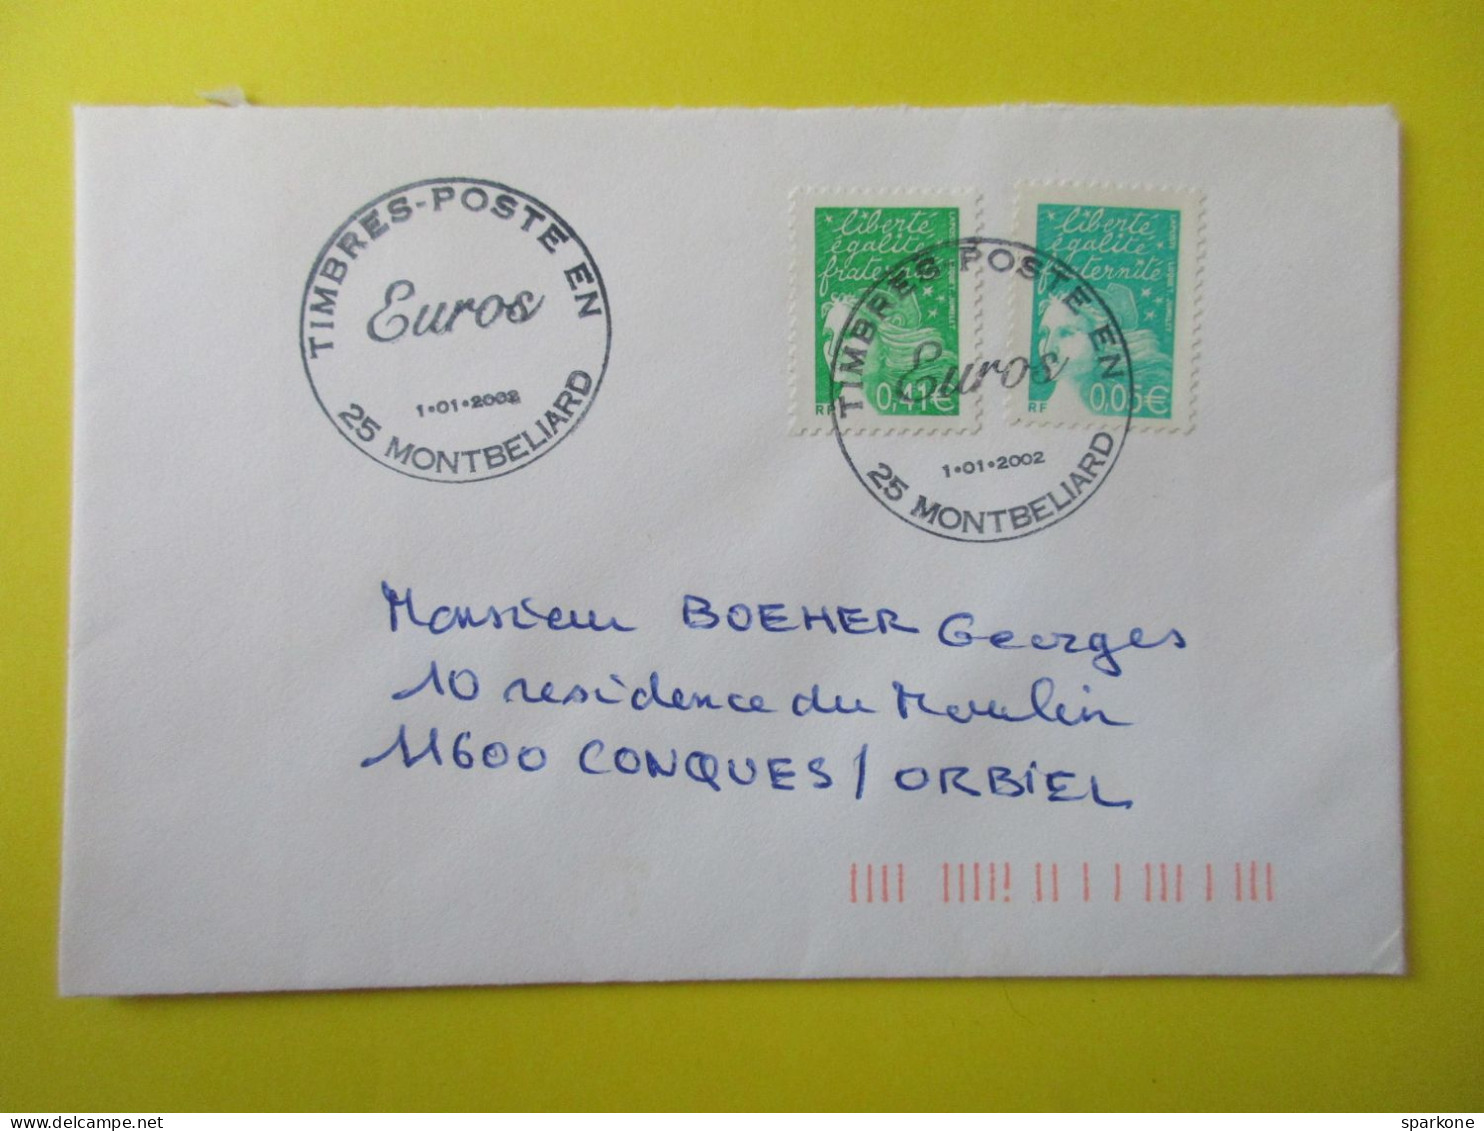 TIMBRES-POSTE EN
Euros
1•01•2002
25 MONTBELIARD
liberté
égalité
fraternité
0,41€
RF
liberté
égalité
fraternité
0,05€
RF
TIMBRES-POSTE EN
Euros
1•01•2002
25 MONTBELIARD
Monsieur BOEHER Georges
10 residence du Moulin
11600 CONQUES / ORBIEL
© sparkone
delcampe.net